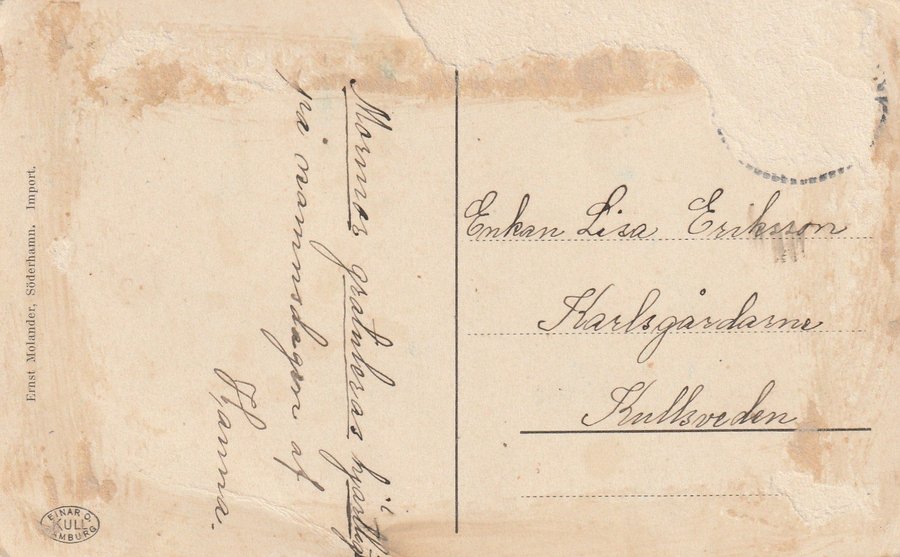 Mormor gratuleras hjärtlig
på namnsdagen af
Hanna.
Enkan Lisa Eriksson
Karlsgårdarne
Kullsveden
Ernst Molander, Söderhamn. Import.
EINAR O. KULL HAMBURG